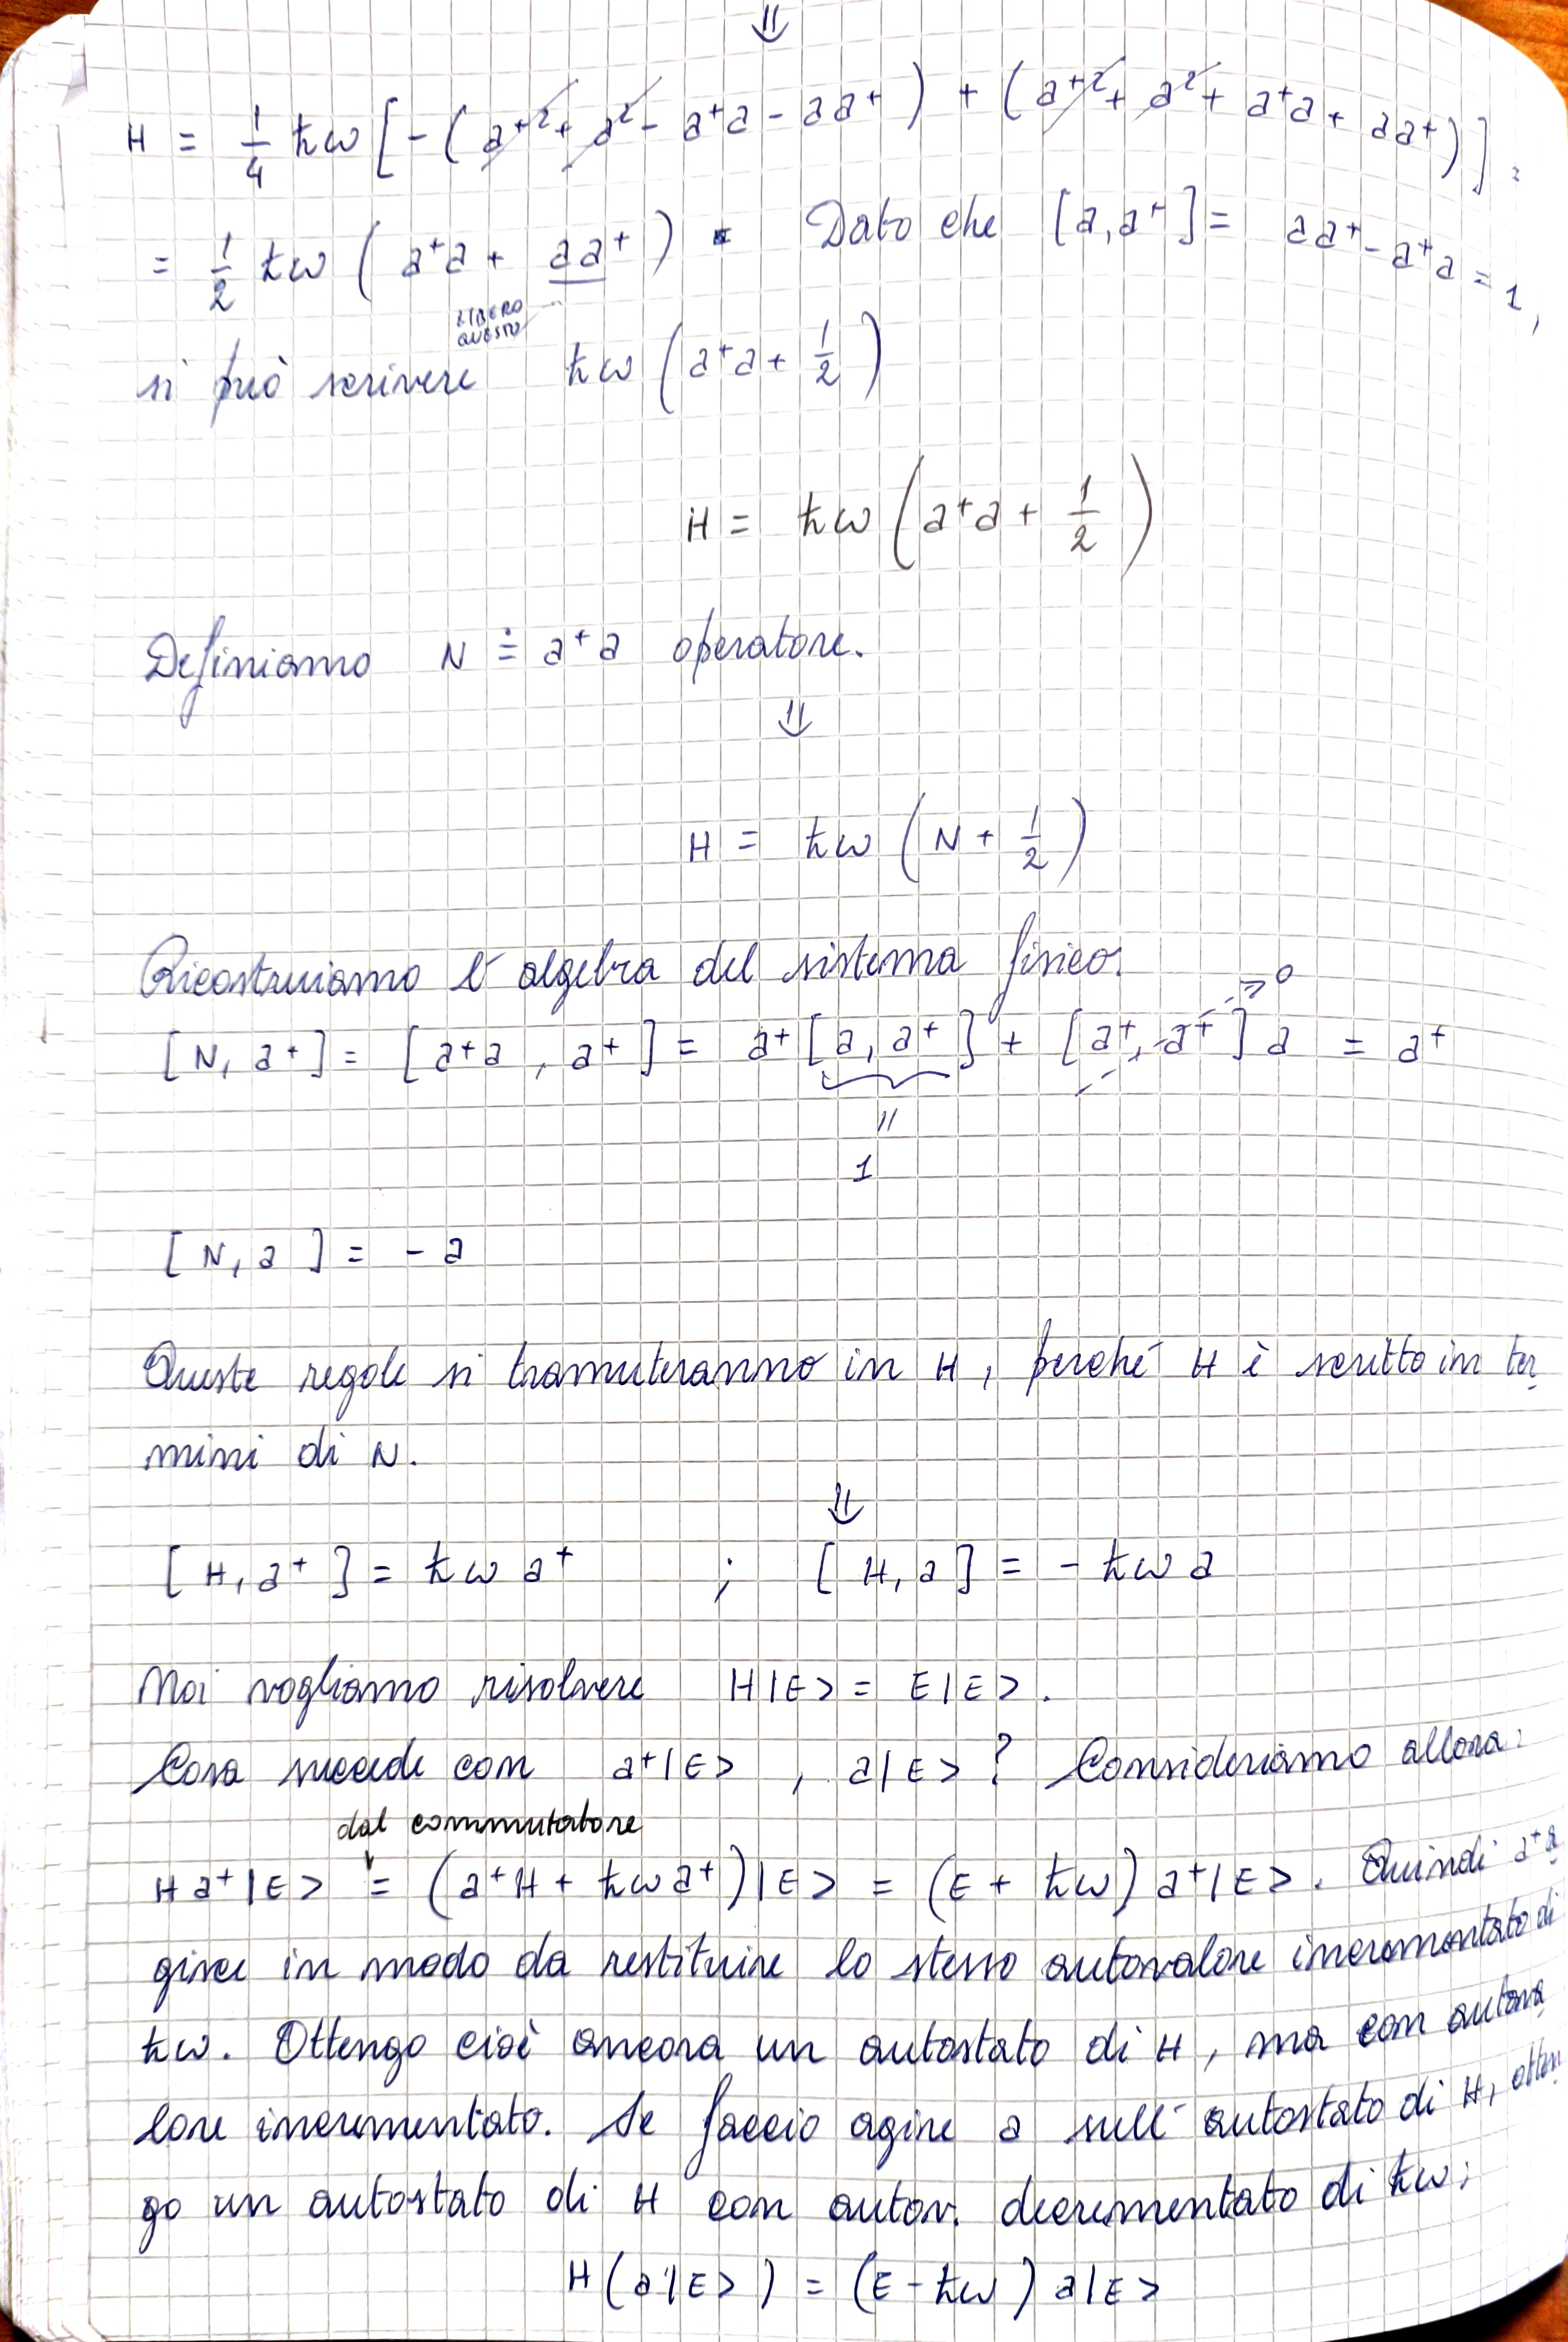 ⇓
H = 1/4 ħω [ - ( a⁺² + a² - a⁺a - aa⁺ ) + ( a⁺² + a² + a⁺a + aa⁺ ) ] =
= 1/2 ħω ( a⁺a + aa⁺ ) . Dato che [a, a⁺] = aa⁺ - a⁺a = 1,
LIBERO
QUESTO
si può scrivere ħω ( a⁺a + 1/2 )
H = ħω ( a⁺a + 1/2 )
Definiamo N ≐ a⁺a operatore.
⇓
H = ħω ( N + 1/2 )
Ricostruiamo l'algebra del sistema fisico.
[ N, a⁺ ] = [ a⁺a , a⁺ ] = a⁺ [ a, a⁺ ] + [ a⁺, a⁺ ] a = a⁺
→ 0
||
1
[ N, a ] = - a
Queste regole si tramuteranno in H, perché H è scritto in ter
mini di N.
⇓
[ H, a⁺ ] = ħω a⁺ ; [ H, a ] = - ħω a
Noi vogliamo risolvere H|E> = E|E>.
Cosa succede con a⁺|E> , a|E> ? Consideriamo allora:
dal commutatore
H a⁺|E> = ( a⁺H + ħω a⁺ )|E> = ( E + ħω ) a⁺|E>. Quindi a⁺ a
gisce in modo da restituire lo stesso autovalore incrementato di
ħω. Ottengo cioè ancora un autostato di H, ma con autova
lore incrementato. Se faccio agire a sull'autostato di H, otten
go un autostato di H con autov. decrementato di ħω:
H ( a|E> ) = ( E - ħω ) a|E>